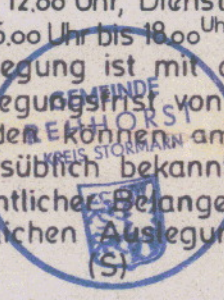 12.00 Uhr, Dienst
5.00 Uhr bis 18.00 Uhr
legung ist mit
legungsfrist von
den können an
süblich bekannt
ntlicher Belange
lichen Auslegu
(S)
GEMEINDE
REHHORST
KREIS STORMARN